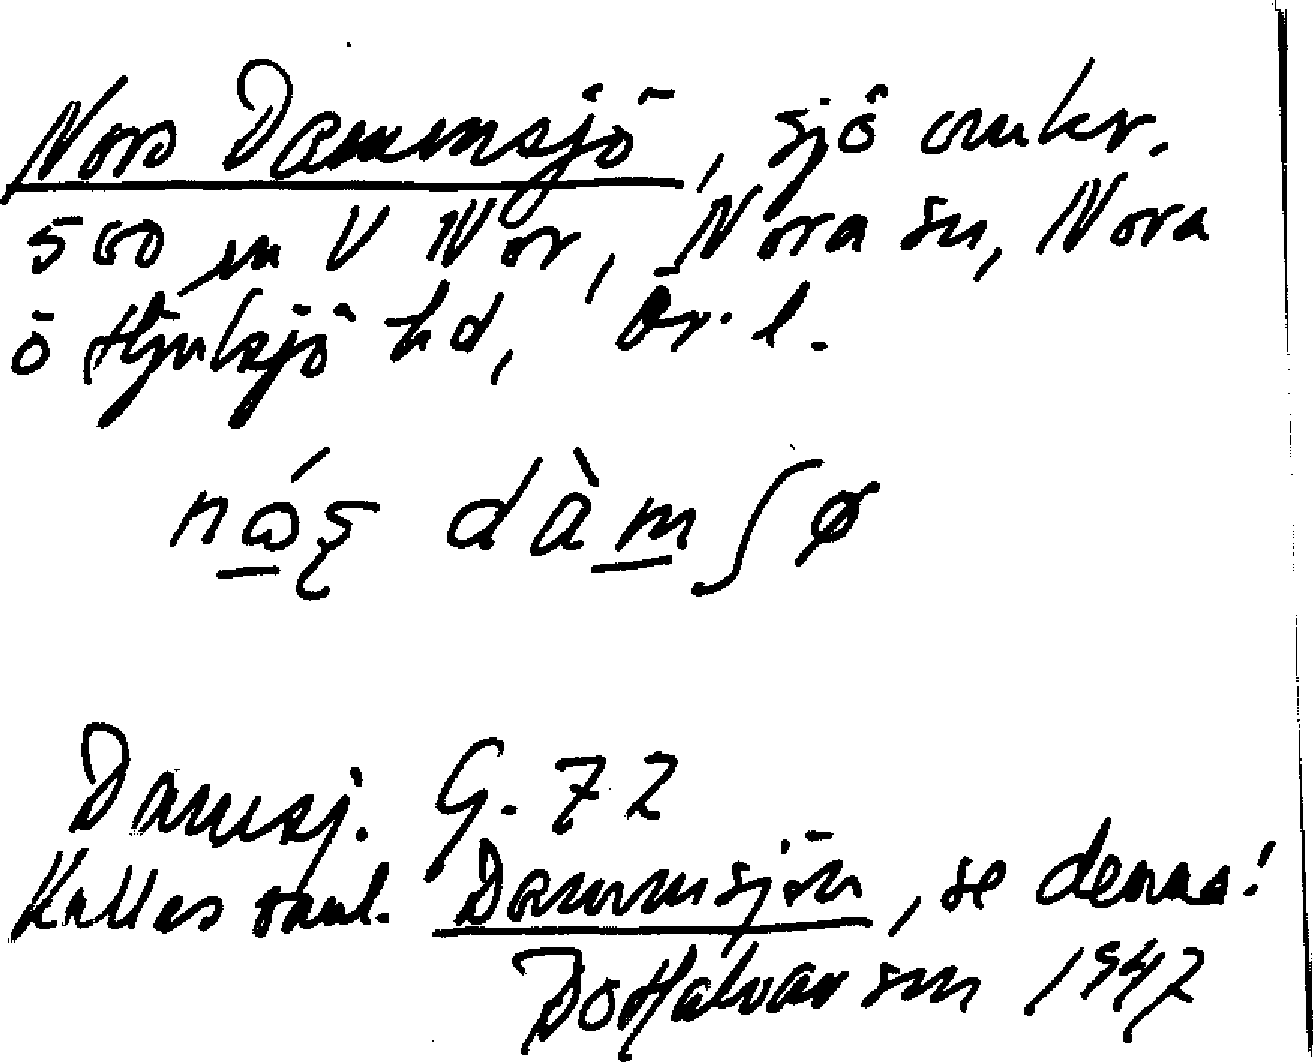 Nors Dammsjö, sjö omkr.
500 m V Nor, Nora sn, Nora
o Hjulsjö hd, Ör. l.
nǻʂ dàmʃø
Dammsj. G. 72
Kallas vanl. Dammsjön, se denna!
Bo Halvarsson 1947